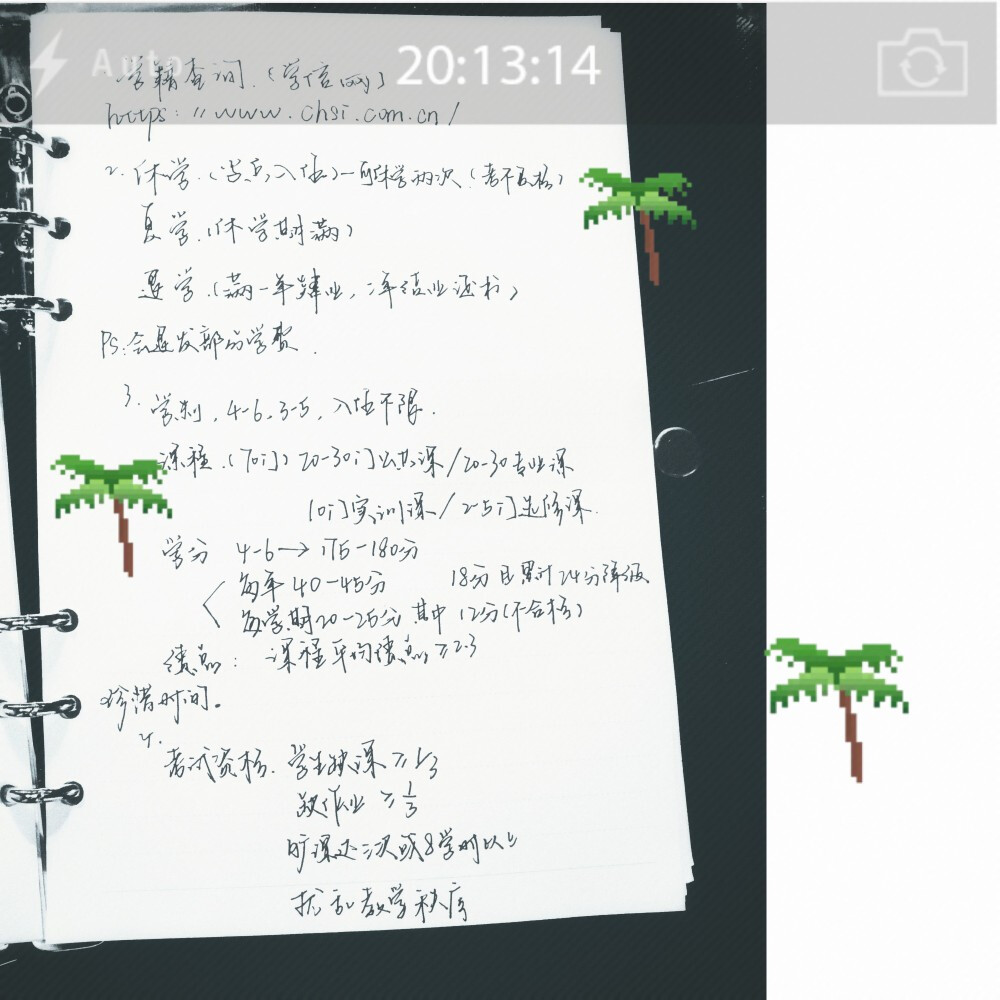 Auto 20:13:14
学籍查询.(学信网)
https://www.chsi.com.cn/
2.休学.(当兵,入伍)一般休学两次(考不及格)
复学.(休学期满)
退学.(满一年肄业,二年结业证书)
PS:会退发部分学费.
3.学制,4-6,3-5,入伍不限.
课程.(70门)20-30门公共课/20-30专业课
10门实训课/2-5门选修课.
学分 4-6→175-180分
每年40-45分 18分 已累计24分降级
每学期20-25分 其中12分(不合格)
绩点: 课程平均绩点≥2.3
珍惜时间。
4.
考试资格. 学生缺课≥1/3
缺作业≥1/3
旷课达三次或8学时以上
扰乱教学秩序